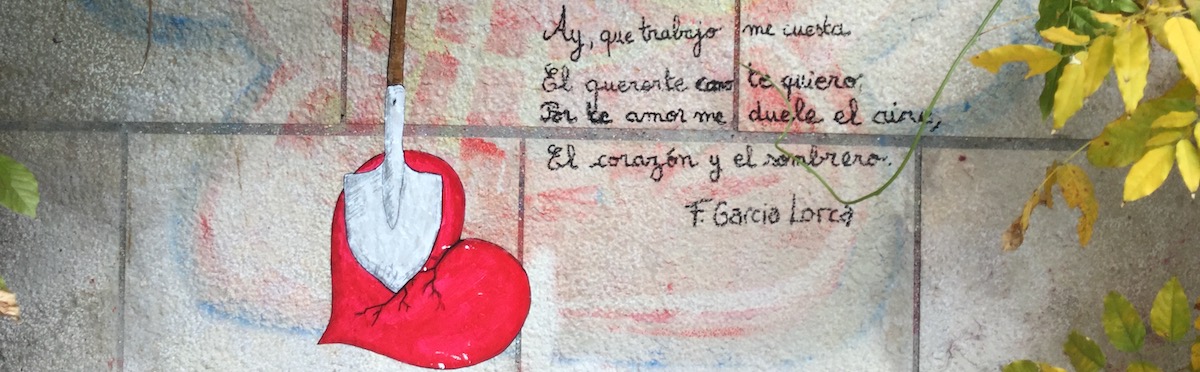 Ay, que trabajo me cuesta
El quererte como te quiero,
Por te amor me duele el aire,
El corazón y el sombrero.
F. Garcia Lorca